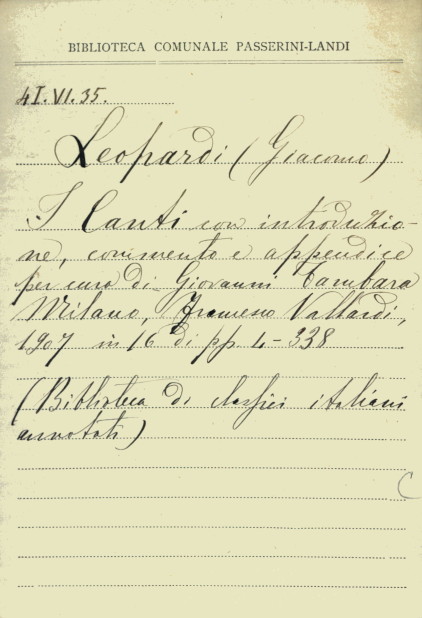 BIBLIOTECA COMUNALE PASSERINI-LANDI
4I.VI.35.
Leopardi (Giacomo)
I Canti con introduzio-
ne, commento e appendice
per cura di Giovanni Tambara
Milano, Francesco Vallardi,
1907 in 16 di pp. 4-338
(Biblioteca di classici italiani
annotati)
C